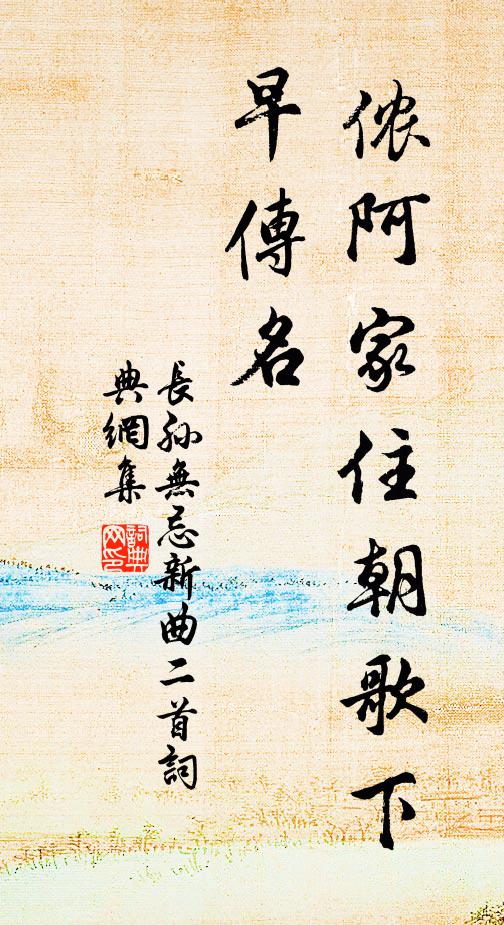 侬阿家住朝歌下
早傳名
長孫無忌新曲二首詞
典網集
詞典
网印